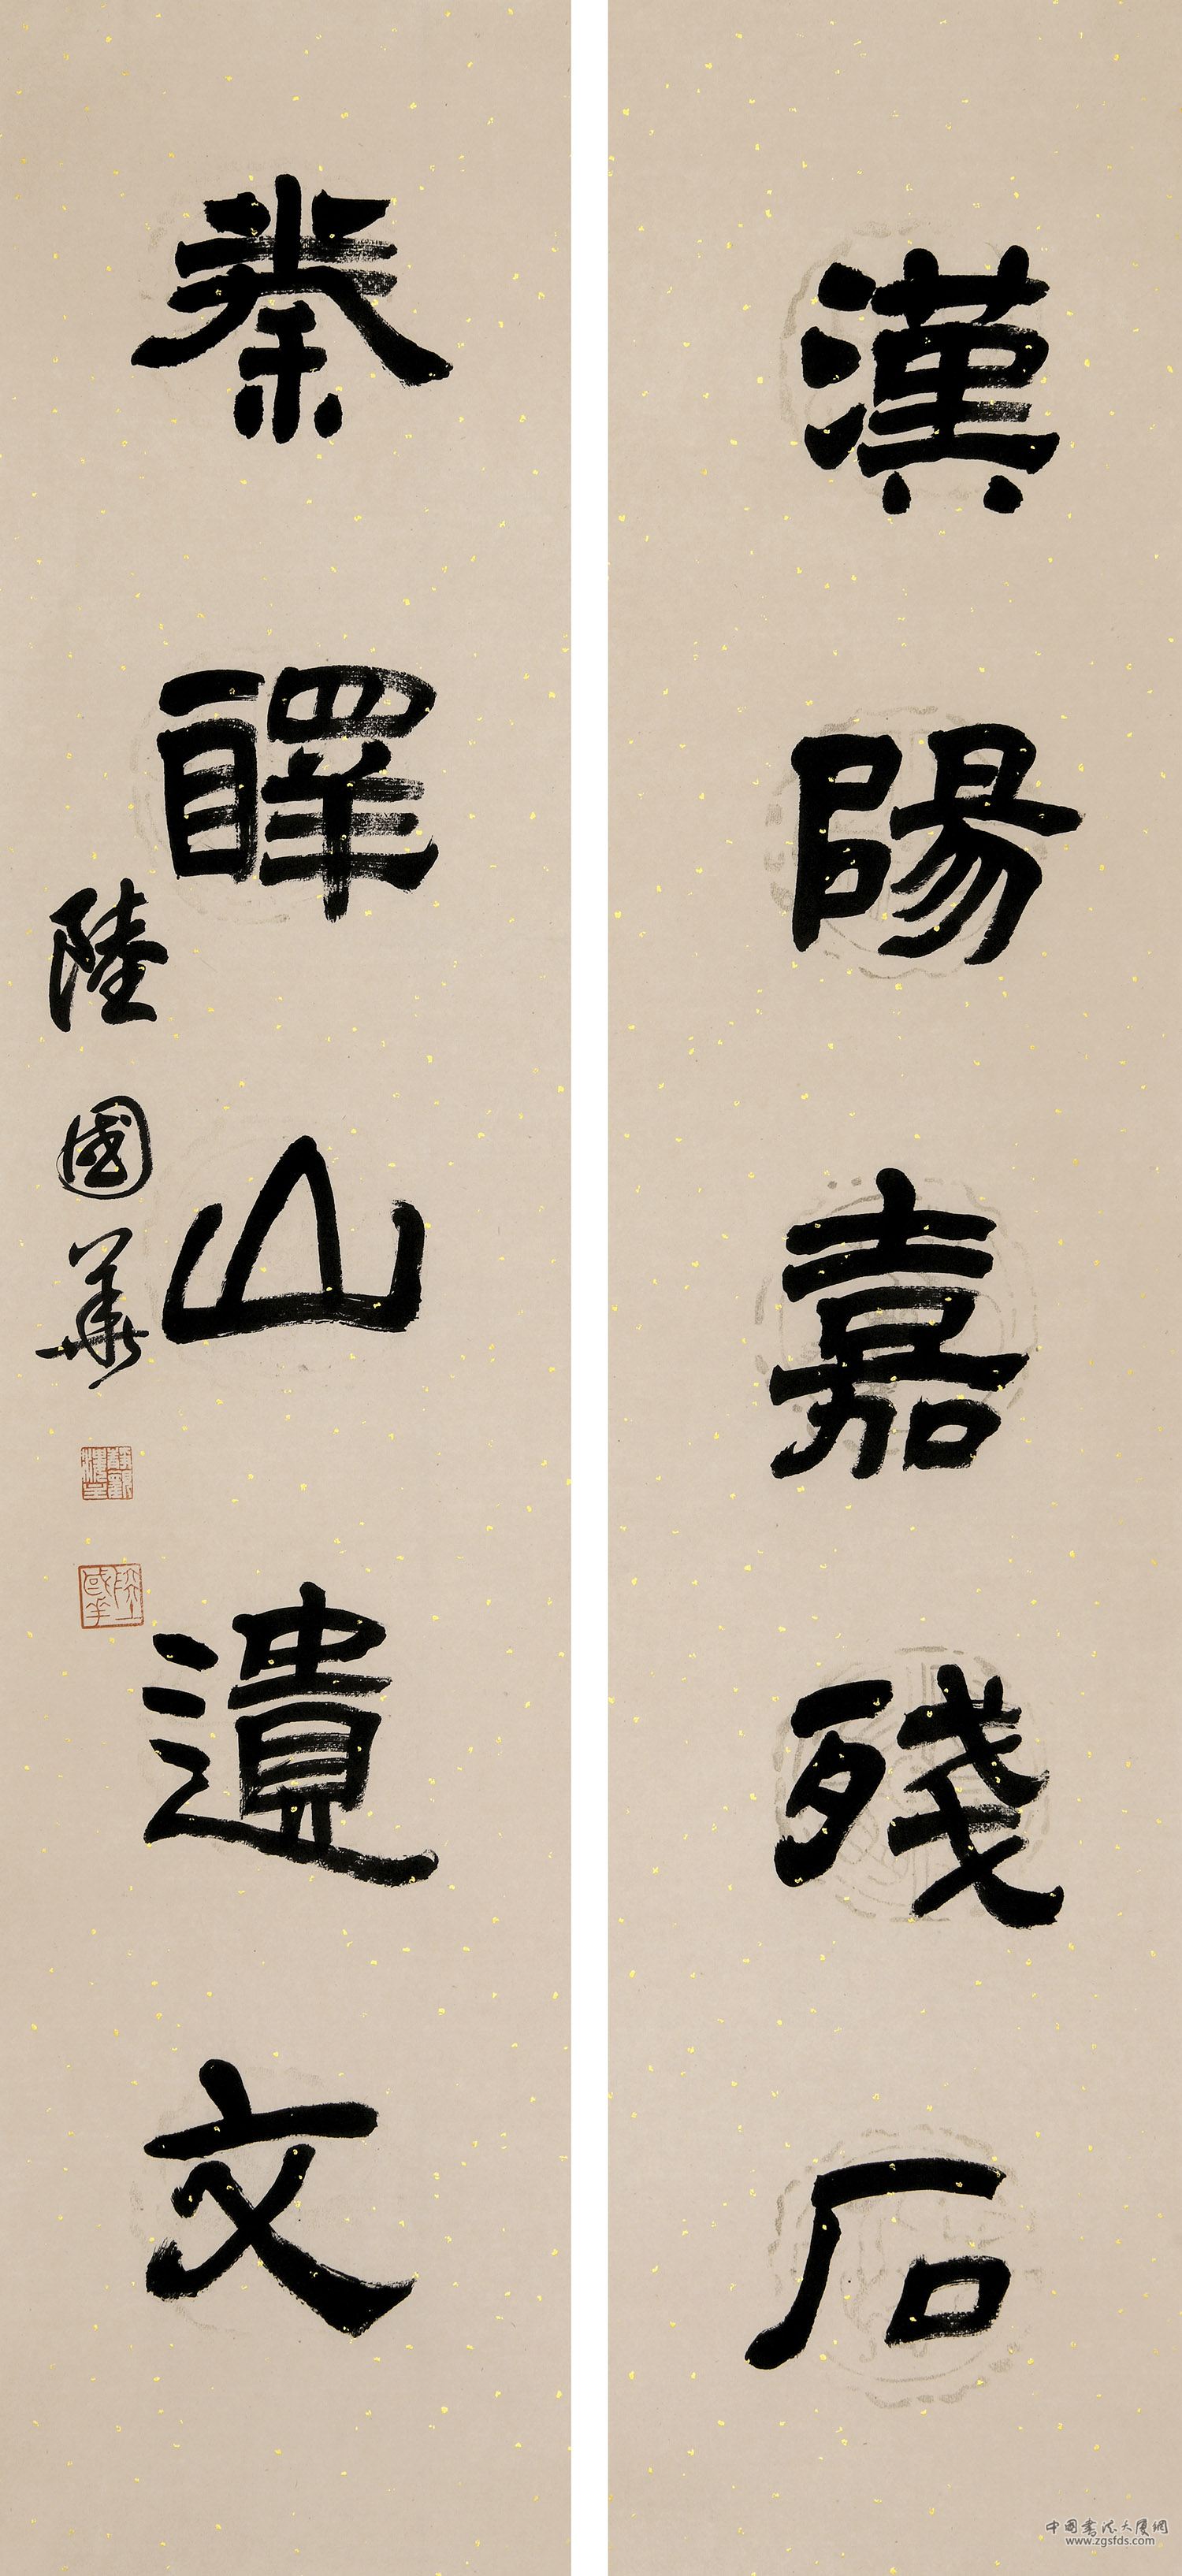 漢陽嘉殘石
秦嶧山遺文
陸國華
陸國華
中國書法大廈網
www.zgsfds.com